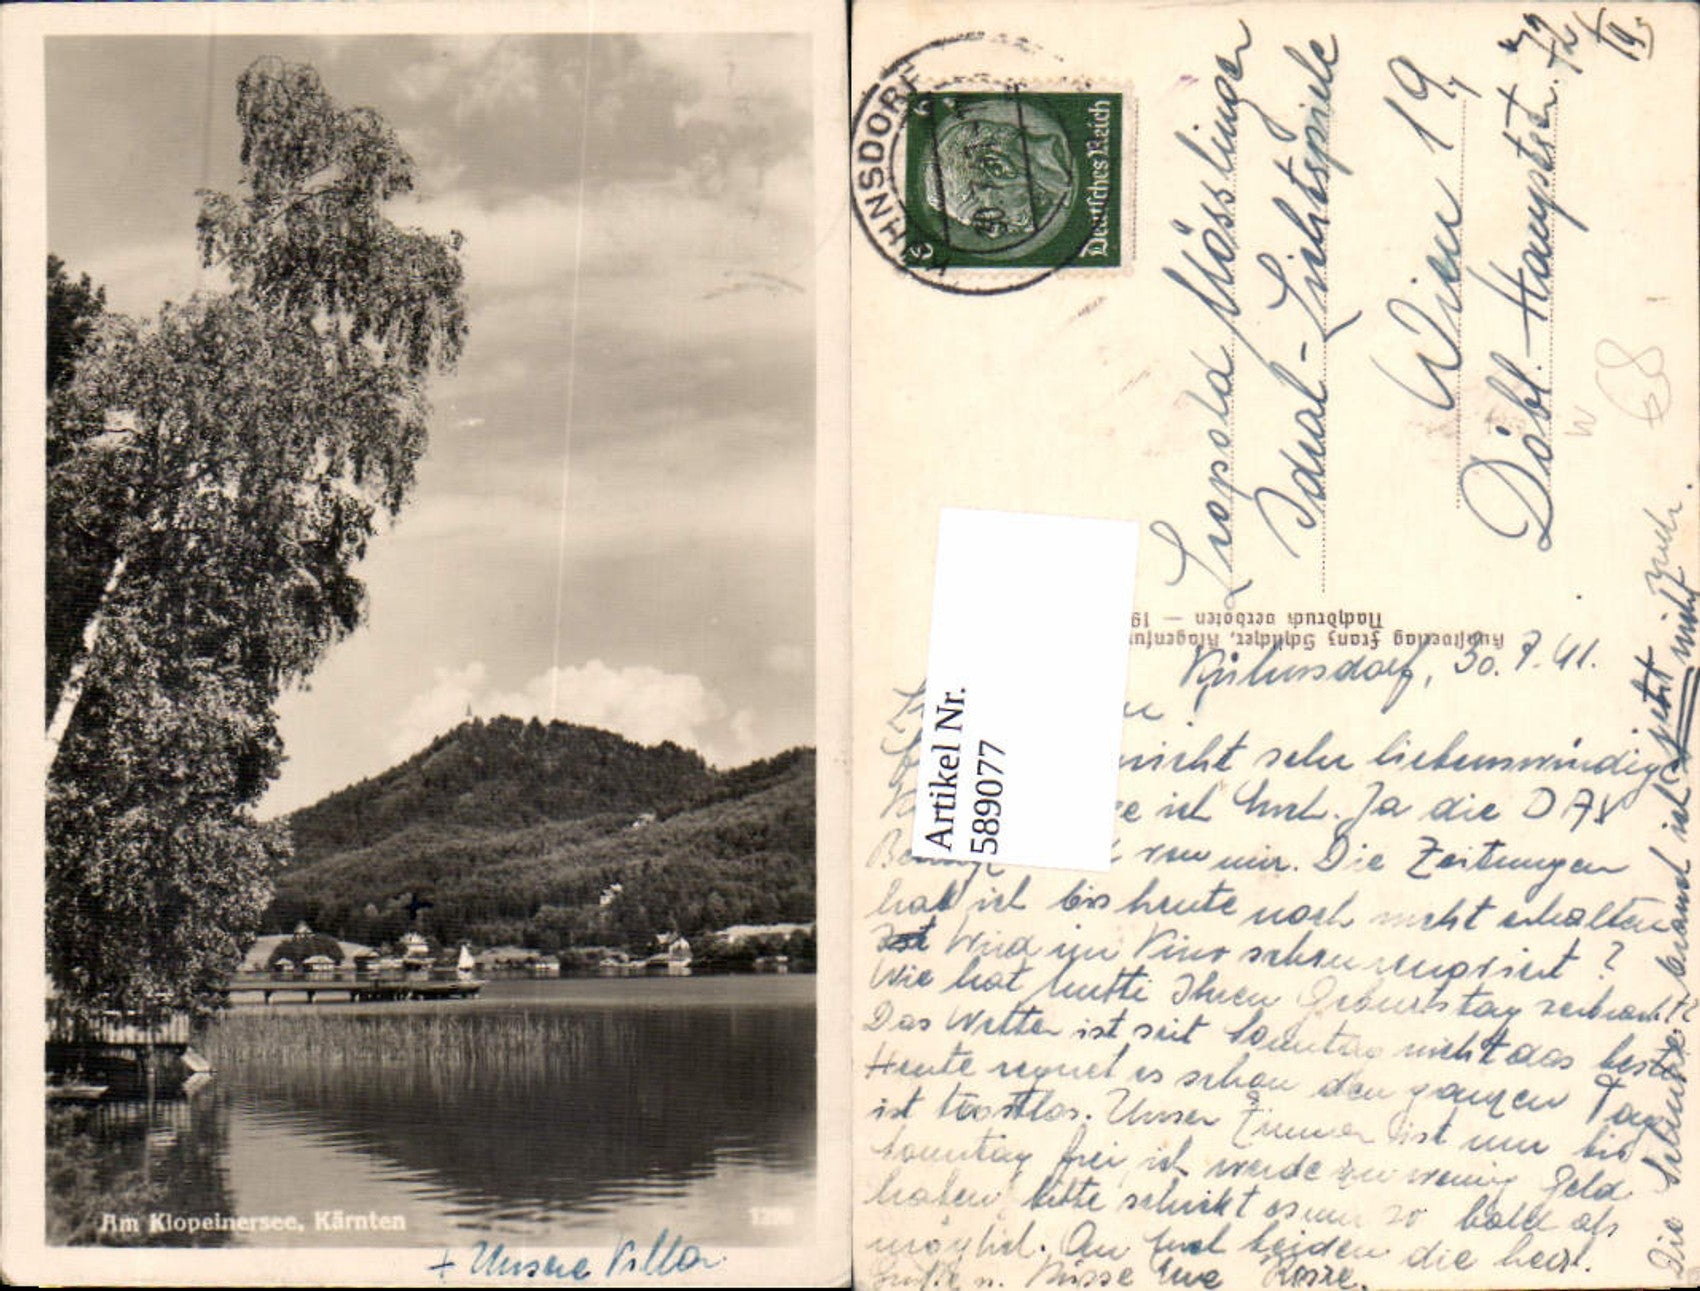 Am Klopeinersee, Kärnten
+ Unsere Villa
HNSDORF
Deutsches Reich
6
Leopold Mösslinger
Ideal-Lichtspiele
Wien 19
Döbl. Hauptstr.
Kunstverlag Franz Schilcher, Klagenfur
Nachdruck verboten – 19
Artikel Nr.
5890077
Kühnsdorf, 30.7.41.
nicht sehr liebenswürdig
ich Euch. Ja die DAF
von mir. Die Zeitungen
hab ich bis heute noch nicht erhalten
Wird im Kino schon renoviert?
Wie hat Mutti Ihren Geburtstag verbracht?
Das Wetter ist seit Sonntag nicht das beste
Heute regnet es schon den ganzen Tag
ist trostlos. Unser Zimmer ist nur bis
Sonntag frei, ich werde zu wenig Geld
haben, bitte schickt es mir so bald als
möglich. An Euch beiden die herzl.
Grüße u. Küsse Eure
Die brauch ich jetzt nicht